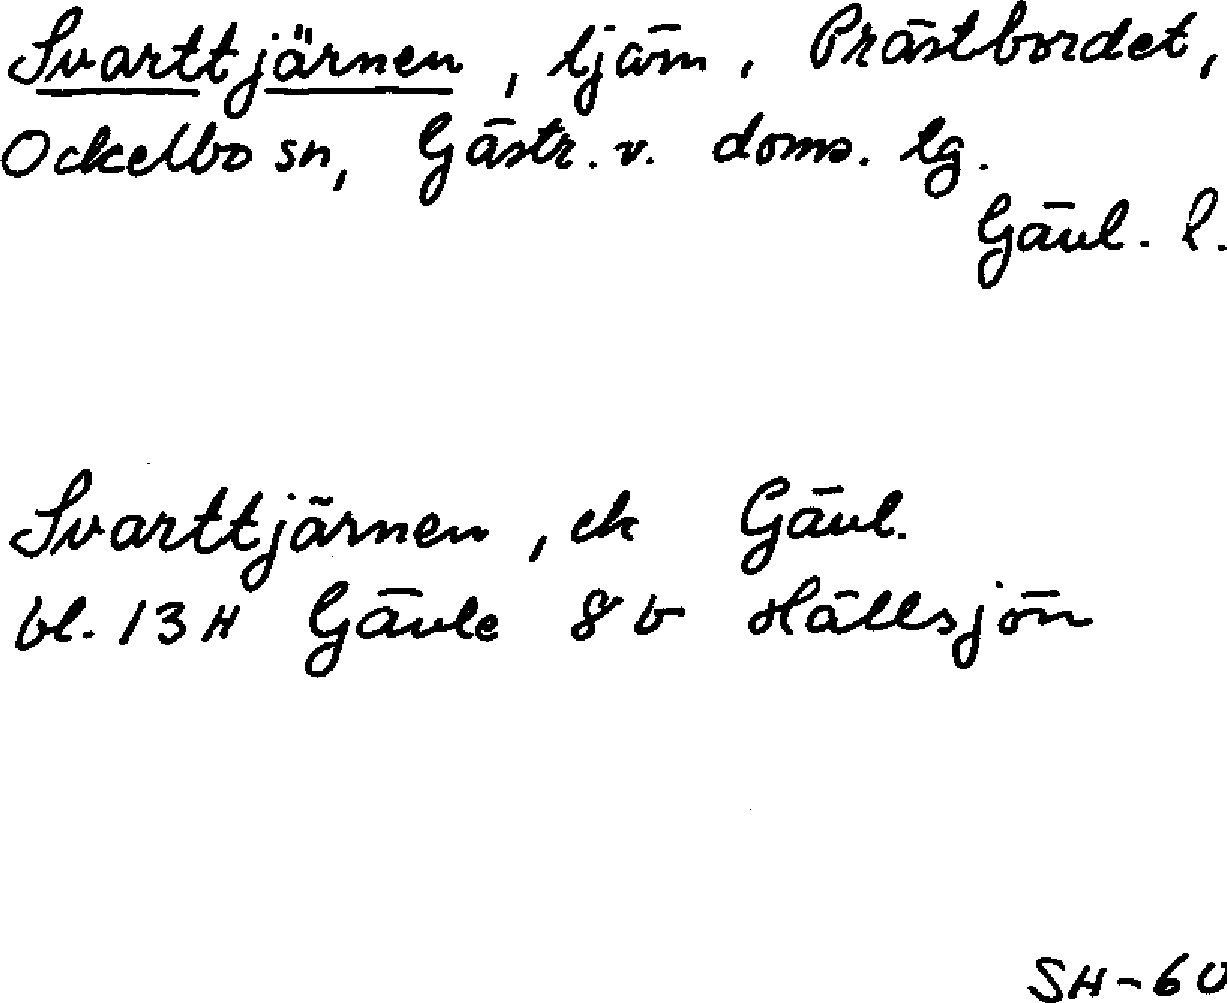 Svarttjärnen, tjärn, Prästbordet,
Ockelbo sn, Gästr. v. doms. lg.
Gävl. l.
Svarttjärnen, ek Gävl.
bl. 13H Gävle 8b Hällsjön
SH-60